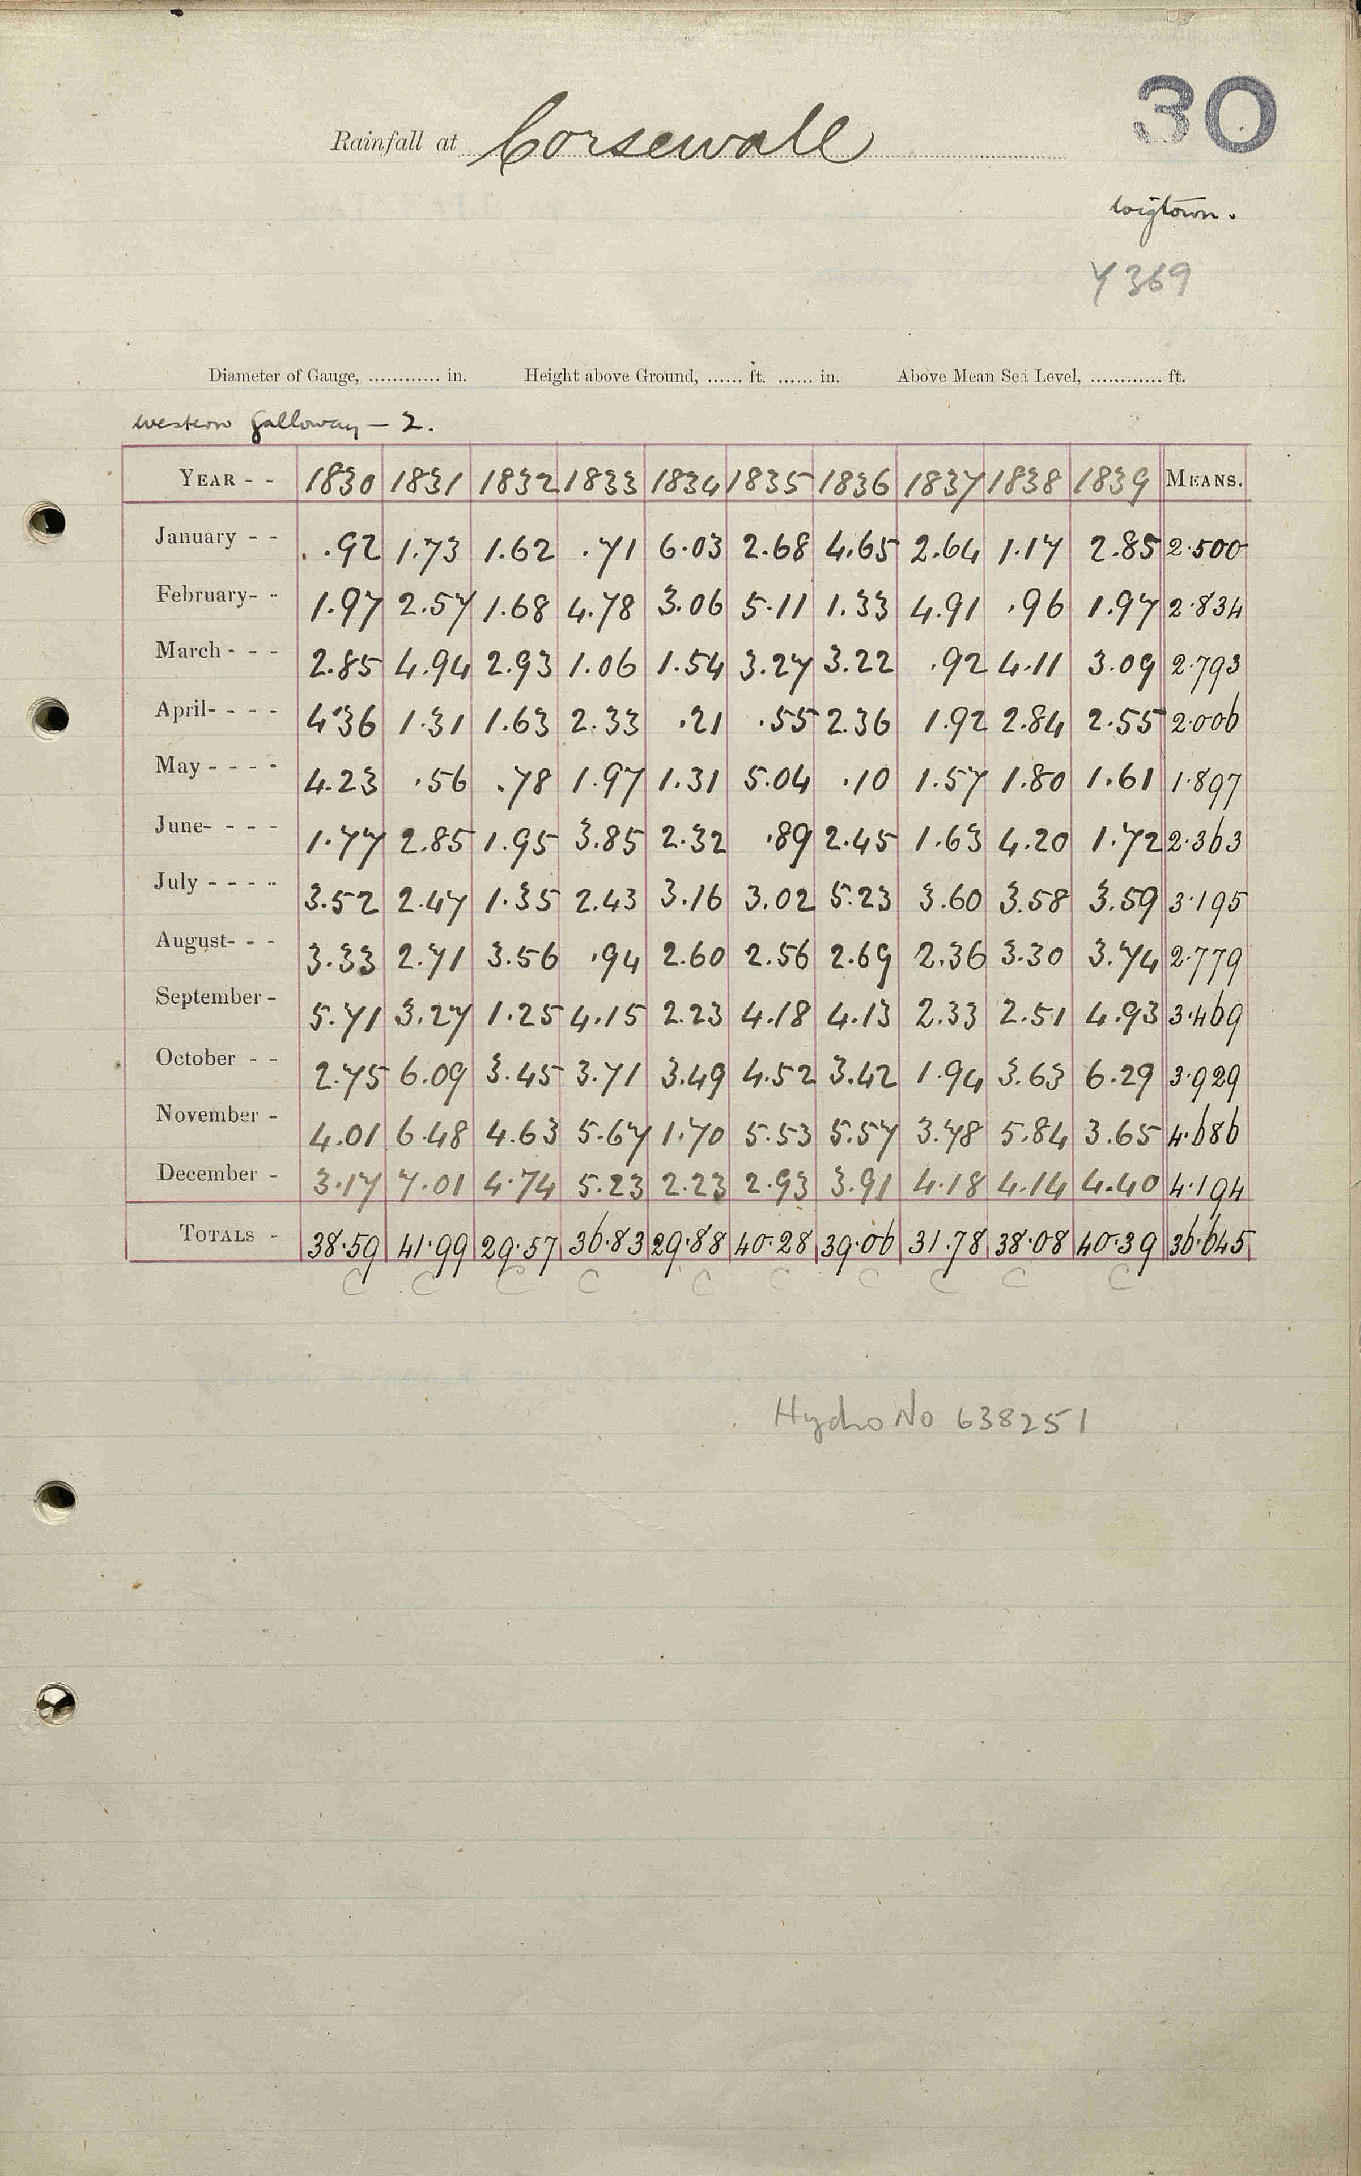 30
Rainfall at Corsewall
Wigtown.
Y 369
Diameter of Gauge, ............ in. Height above Ground, ...... ft. ...... in. Above Mean Sea Level, ............ ft.
Western Galloway - 2.
YEAR - - 1830 1831 1832 1833 1834 1835 1836 1837 1838 1839 MEANS.
January - - .92 1.73 1.62 .71 6.03 2.68 4.65 2.64 1.17 2.85 2.500
February- - 1.97 2.57 1.68 4.78 3.06 5.11 1.33 4.91 .96 1.97 2.834
March - - - 2.85 4.94 2.93 1.06 1.54 3.27 3.22 .92 4.11 3.09 2.793
April- - - - 4.36 1.31 1.63 2.33 .21 .55 2.36 1.92 2.84 2.55 2.006
May - - - - 4.23 .56 .78 1.97 1.31 5.04 .10 1.57 1.80 1.61 1.897
June- - - - 1.77 2.85 1.95 3.85 2.32 .89 2.45 1.63 4.20 1.72 2.363
July - - - - 3.52 2.47 1.35 2.43 3.16 3.02 5.23 3.60 3.58 3.59 3.195
August- - - 3.33 2.71 3.56 .94 2.60 2.56 2.69 2.36 3.30 3.74 2.779
September - 5.71 3.27 1.25 4.15 2.23 4.18 4.13 2.33 2.51 4.93 3.469
October - - 2.75 6.09 3.45 3.71 3.49 4.52 3.42 1.94 3.63 6.29 3.929
November - 4.01 6.48 4.63 5.67 1.70 5.53 5.57 3.78 5.84 3.65 4.686
December - 3.17 7.01 4.74 5.23 2.23 2.93 3.91 4.18 4.14 4.40 4.194
TOTALS - 38.59 41.99 29.57 36.83 29.88 40.28 39.06 31.78 38.08 40.39 36.645
C C C C C C C C C C
Hydro No 638251